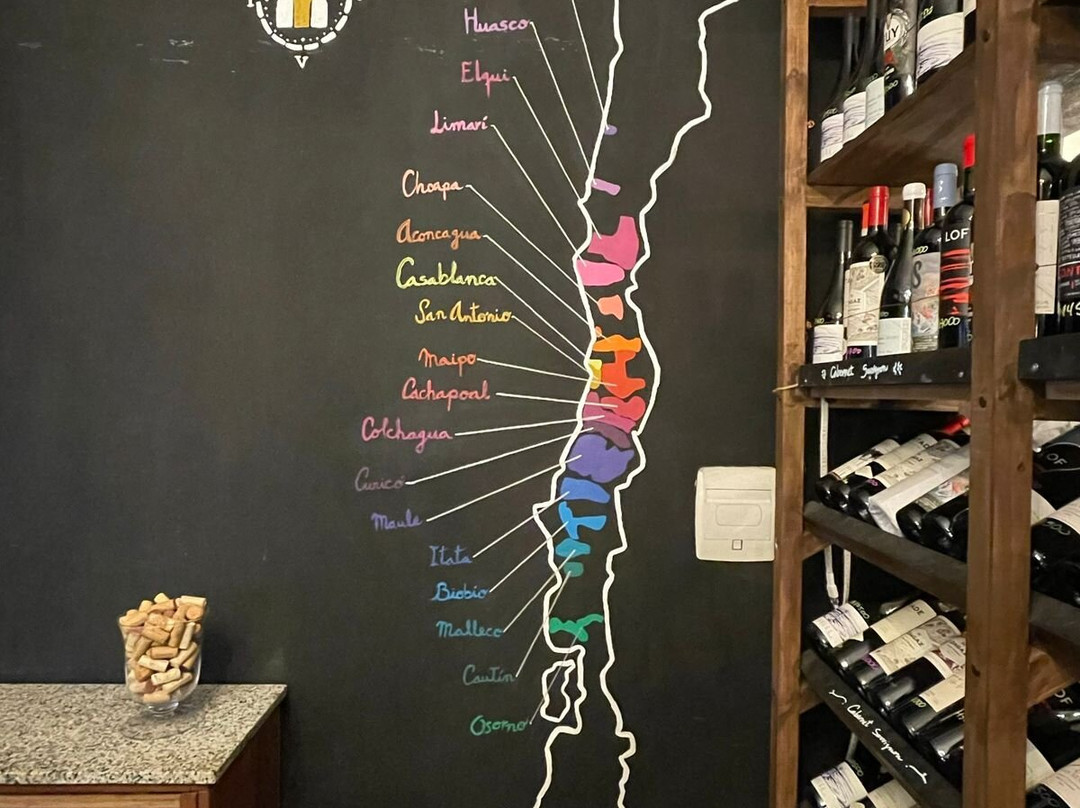 Huasco
Elqui
Limarí
Choapa
Aconcagua
Casablanca
San Antonio
Maipo
Cachapoal
Colchagua
Curicó
Maule
Itata
Biobío
Malleco
Cautín
Osorno
LOF
Cabernet Sauvignon
Cabernet Sauvignon